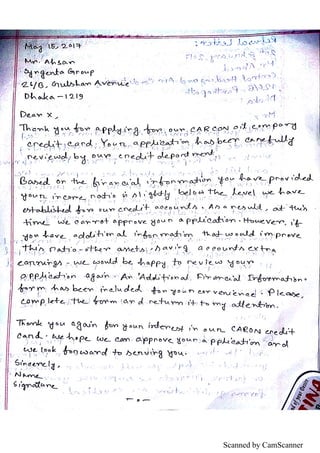 May 15, 2017
Mr. Ahsan
Syngenta Group
26/B, Gulshan Avenue
Dhaka-1219
Dear X,
Thank you for applying for our CARCON oil company
credit card. Your application has been carefully
reviewd, by our credit department.
Based on the financial information you have provided
your income ratio is slightly below the level we have
established for our credit accounts. As a result, at this
time we cannot approve your application. However, if
you have additional information that would improve
this ratio-other assets, saving accounts extra
earnings - we would be happy to review your
application again. An Additional Financial Information
form has been included for your convenience. Please,
complete the form and return it to my attention.
Thank you again for your interest in our CARON credit
card. We hope we can approve your application and
we look forward to serving you.
Sincerely,
Name
Signature
Scanned by CamScanner